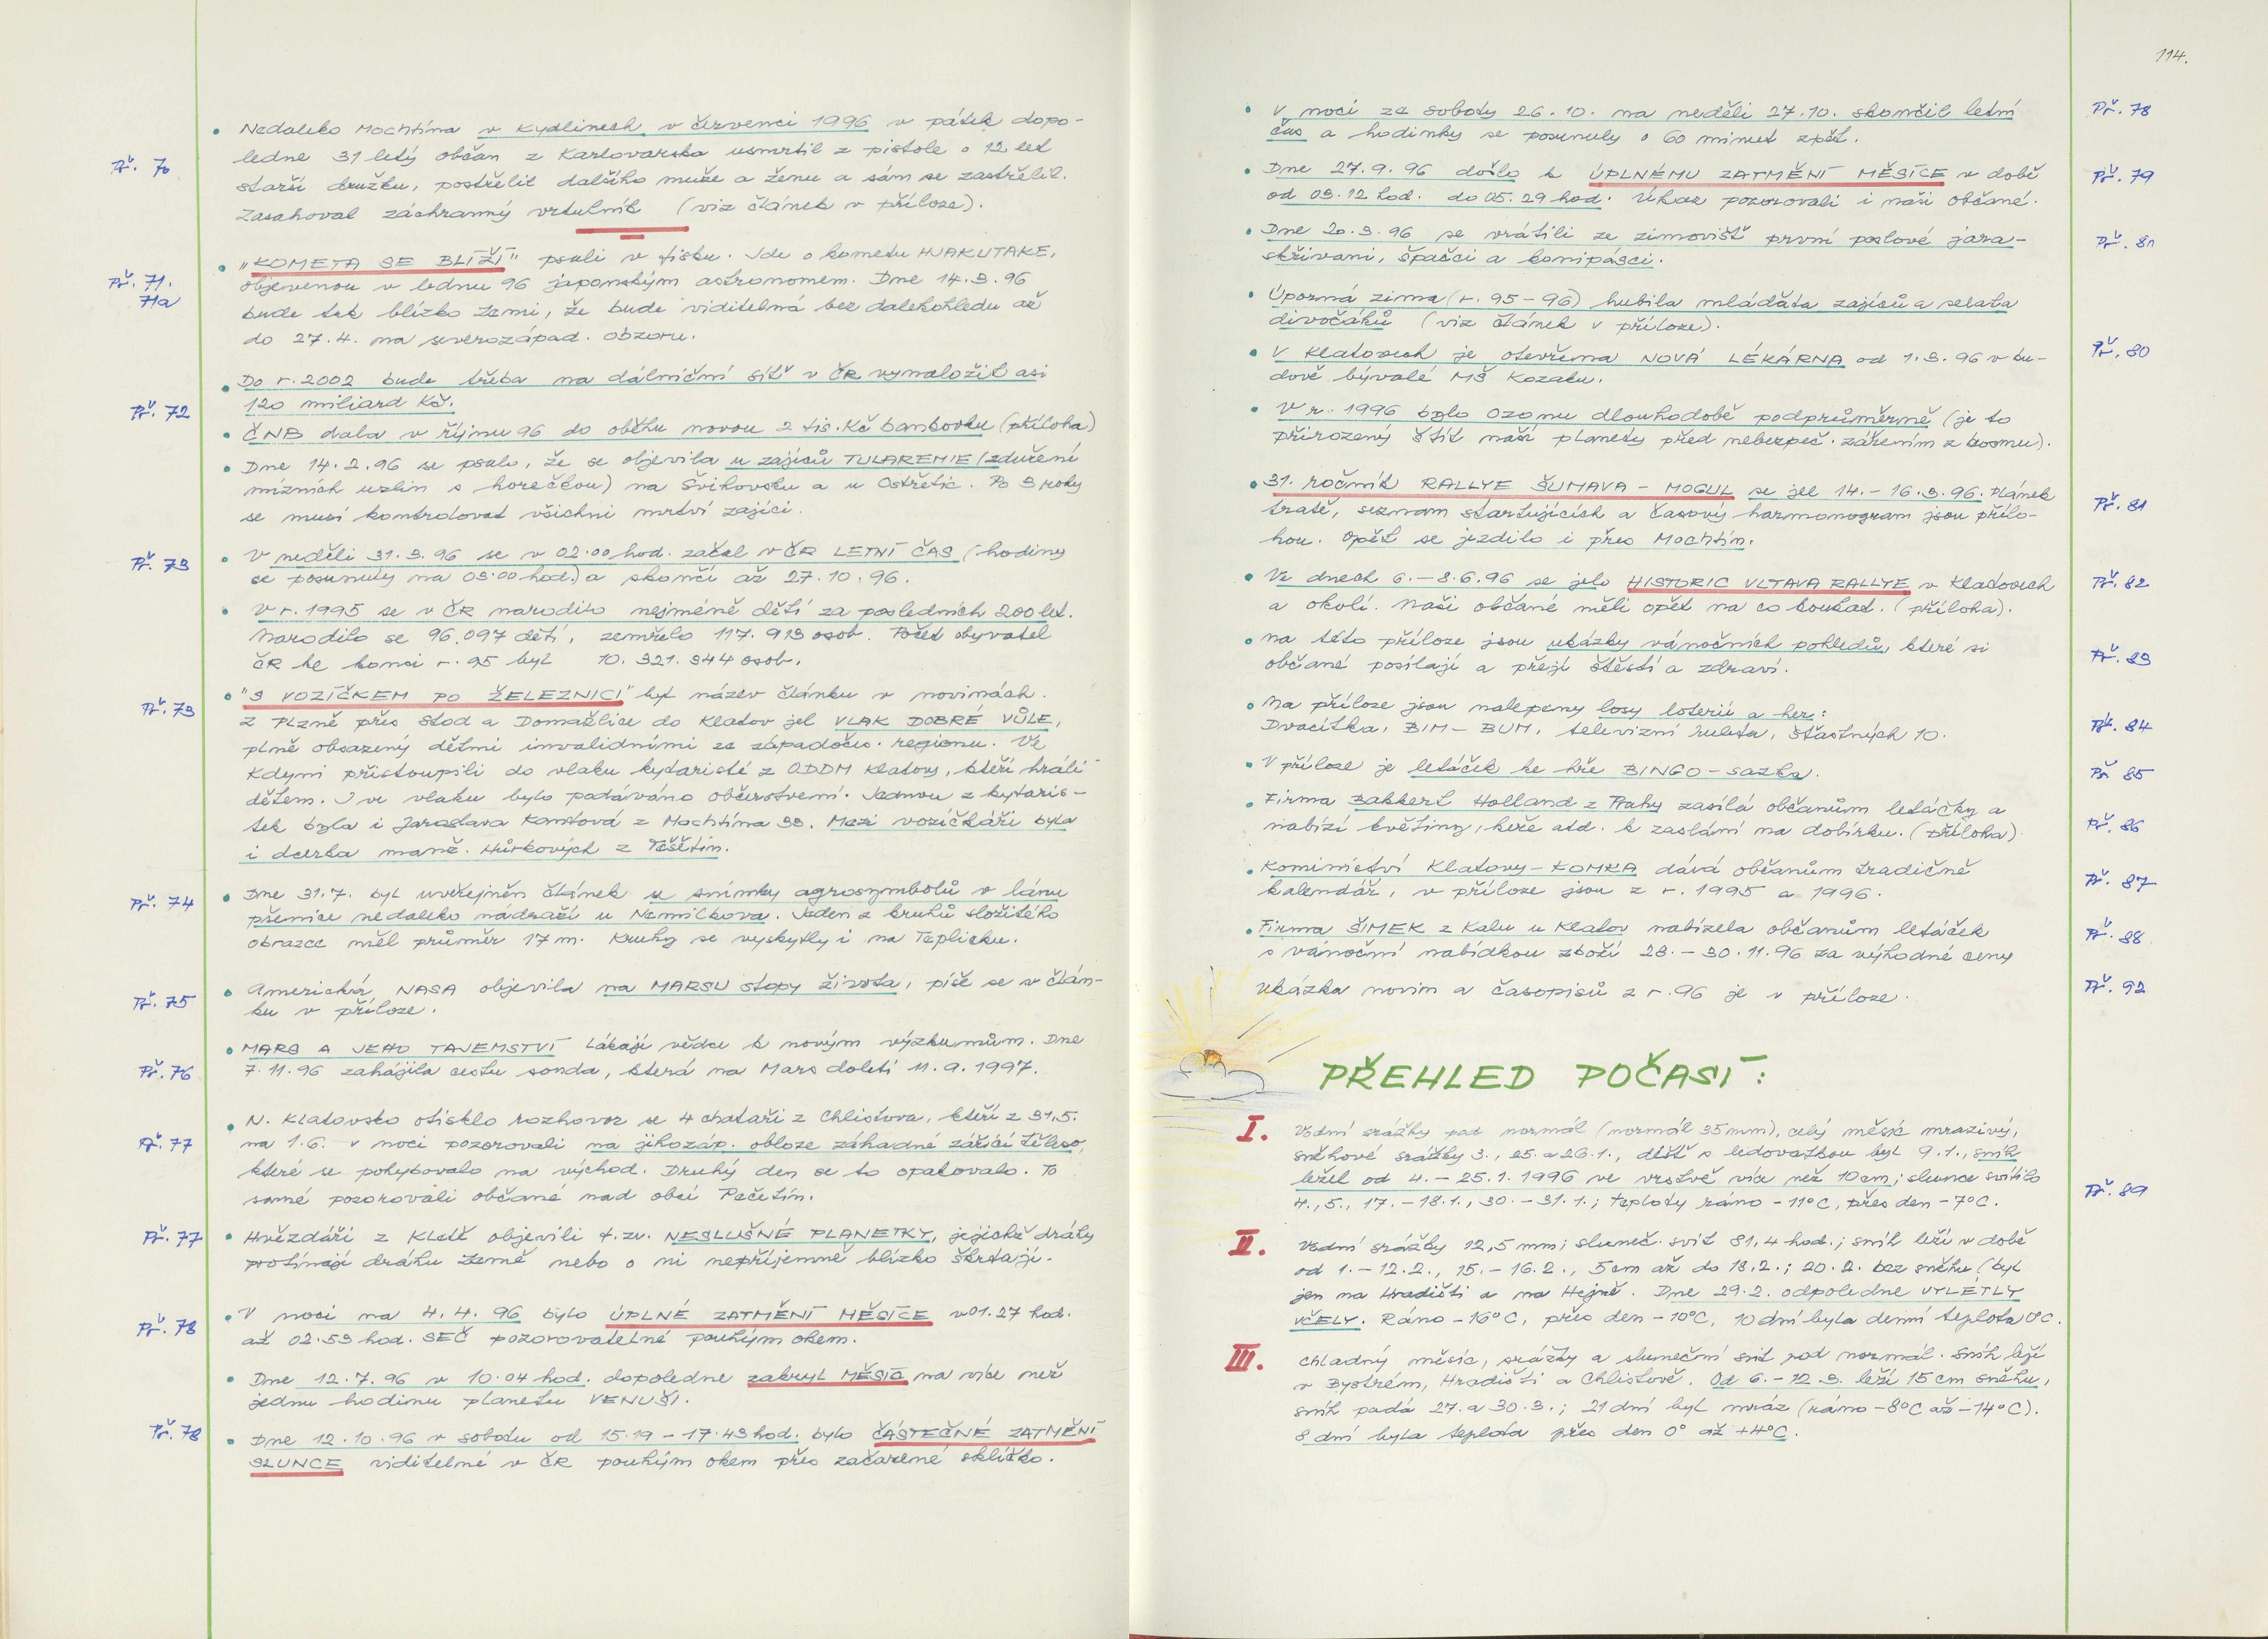 • Nedaleko Mochtína v Kydlinech v červenci 1996 v pátek dopo-
Př. 70
ledne 31 letý občan z Karlovarska usmrtil z pistole o 12 let
starší družku, postřelil dalšího muže a ženu a sám se zastřelil.
Zasahoval záchranný vrtulník (viz článek v příloze).
• "KOMETA SE BLÍŽÍ" psali v tisku. Jde o kometu HJAKUTAKE,
Př. 71.
71a
objevenou v lednu 96 japonským astronomem. Dne 14.3.96
bude tak blízko Zemi, že bude viditelná bez dalekohledu až
do 27.4. na severozápad. obzoru.
• Do r. 2002 bude třeba na dálniční síť v ČR vynaložit asi
120 miliard Kč.
Př. 72
• ČNB dala v říjnu 96 do oběhu novou 2 tis. Kč bankovku (příloha)
• Dne 14.2.96 se psalo, že se objevila u zajíců TULAREMIE (zduření
mízních uzlin s horečkou) na Švihovsku a u Ostřetic. Po 3 roky
se musí kontrolovat všichni mrtví zajíci.
Př. 73
• V neděli 31.3.96 se v 02.00 hod. začal v ČR LETNÍ ČAS (hodiny
se posunuly na 03.00 hod.) a skončí až 27.10.96.
• V r. 1995 se v ČR narodilo nejméně dětí za posledních 200 let.
Narodilo se 96.097 dětí, zemřelo 117.913 osob. Počet obyvatel
ČR ke konci r. 95 byl 10.321.344 osob.
• "S VOZÍČKEM PO ŽELEZNICI" byl název článku v novinách.
Př. 73
Z Plzně přes Stod a Domažlice do Klatov jel VLAK DOBRÉ VŮLE,
plně obsazený dětmi invalidními ze západočes. regionu. Ve
Kdyni přistoupili do vlaku kytaristé z ODDM Klatovy, kteří hráli
dětem. I ve vlaku bylo podáváno občerstvení. Jednou z kytaris-
tek byla i Jaroslava Kantová z Mochtína 33. Mezi vozíčkáři byla
i dcerka manž. Hůrkových z Těšětin.
Př. 74
• Dne 31.7. byl uveřejněn článek se snímky agrosymbolů v lánu
pšenice nedaleko nádraží u Nemilkova. Jeden z kruhů složitého
obrazce měl průměr 17 m. Kruhy se vyskytly i na Teplicku.
Př. 75
• Americká NASA objevila na MARSU stopy života, píše se v člán-
ku v příloze.
• MARS A JEHO TAJEMSTVÍ lákají vědce k novým výzkumům. Dne
Př. 76
7.11.96 zahájila cestu sonda, která na Mars doletí 11.9.1997.
• N. Klatovsko otisklo rozhovor se 4 chataři z Chlistova, kteří z 31.5.
Př. 77
na 1.6. v noci pozorovali na jihozáp. obloze záhadné zářící těleso,
které se pohybovalo na východ. Druhý den se to opakovalo. To
samé pozorovali občané nad obcí Pačetín.
Př. 77
• Hvězdáři z Kletě objevili t.zv. NESLUŠNÉ PLANETKY, jejichž dráhy
protínají dráhu Země nebo o ni nepříjemně blízko škrtají.
• V noci na 4.4.96 bylo ÚPLNÉ ZATMĚNÍ MĚSÍCE v 01.27 hod.
Př. 78
až 02.53 hod. SEČ pozorovatelné pouhým okem.
• Dne 12.7.96 v 10.04 hod. dopoledne zakryl MĚSÍC na více než
jednu hodinu planetu VENUŠI.
Př. 78
• Dne 12.10.96 v sobotu od 15.19 – 17.43 hod. bylo ČÁSTEČNÉ ZATMĚNÍ
SLUNCE viditelné v ČR pouhým okem přes začazené sklíčko.
114.
• V noci ze soboty 26.10. na neděli 27.10. skončil letní
Př. 78
čas a hodinky se posunuly o 60 minut zpět.
• Dne 27.9.96 došlo k ÚPLNÉMU ZATMĚNÍ MĚSÍCE v době
Př. 79
od 03.12 hod. do 05.29 hod. Úkaz pozorovali i naši občané.
• Dne 20.3.96 se vrátili ze zimovišť první poslové jara –
Př. 80
skřivani, špačci a konipásci.
• Úporná zima (r. 95–96) hubila mláďata zajíců a selata
divočáků (viz článek v příloze).
• V Klatovech je otevřena NOVÁ LÉKÁRNA od 1.3.96 v bu-
Př. 80
dově bývalé MŠ Kozaku.
• V r. 1996 bylo ozonu dlouhodobě podprůměrně (je to
přirozený štít naší planety před nebezpeč. zářením z kosmu).
• 31. ročník RALLYE ŠUMAVA – MOGUL se jel 14.–16.3.96. Plánek
Př. 81
tratě, seznam startujících a časový harmonogram jsou přílo-
hou. Opět se jezdilo i přes Mochtín.
• Ve dnech 6.–8.6.96 se jela HISTORIC VLTAVA RALLYE v Klatovech
Př. 82
a okolí. Naši občané měli opět na co koukat. (příloha).
• Na této příloze jsou ukázky vánočních pohledů, které si
Př. 83
občané posílají a přejí štěstí a zdraví.
• Na příloze jsou nalepeny losy loterií a her:
Př. 84
Dvacítka, BIM – BUM, televizní ruleta, šťastných 10.
• V příloze je letáček ke hře BINGO – sazka.
Př. 85
• Firma Bakkert Holland z Prahy zasílá občanům letáčky a
Př. 86
nabízí květiny, keře atd. k zaslání na dobírku. (příloha)
• Kominictví Klatovy – KOMKA dává občanům tradičně
Př. 87
kalendář, v příloze jsou z r. 1995 a 1996.
• Firma ŠIMEK z Kalu u Klatov nabízela občanům letáček
Př. 88
s vánoční nabídkou zboží 28.–30.11.96 za výhodné ceny
Ukázka novin a časopisů z r. 96 je v příloze.
Př. 92
PŘEHLED POČASÍ:
I. Vodní srážky pod normál (normál 35 mm), celý měsíc mrazivý,
sněhové srážky 3., 25. a 26.1., déšť s ledovatkou byl 9.1., sníh
ležel od 4.–25.1.1996 ve vrstvě více než 10 cm; slunce svítilo
Př. 89
4., 5., 17.–18.1., 30.–31.1.; teploty ráno -11°C, přes den -7°C.
II. Vodní srážky 12,5 mm; sluneč. svit 81,4 hod.; sníh leží v době
od 1.–12.2., 15.–16.2., 5 cm až do 18.2.; 20.2. bez sněhu (byl
jen na Hradišti a na Hejně. Dne 29.2. odpoledne VYLÉTLY
VČELY. Ráno -16°C, přes den -10°C, 10 dní byla denní teplota 0°C.
III. Chladný měsíc, srážky a sluneční svit pod normál. Sníh leží
v Bystrém, Hradišti a Chlistově. Od 6.–12.3. leží 15 cm sněhu,
sníh padá 27. a 30.3.; 21 dní byl mráz (ráno -8°C až -14°C).
8 dní byla teplota přes den 0° až +4°C.